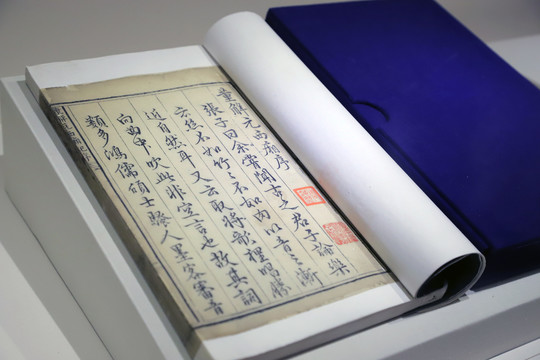 董解元西廂序
張子曰余嘗聞古之君子論樂
云絲不如竹竹不如肉以音之漸
近自然耳又云取將歌裡唱勝
向曲中吹此非空言也故其詞
類多鴻儒碩士騷人墨客審音